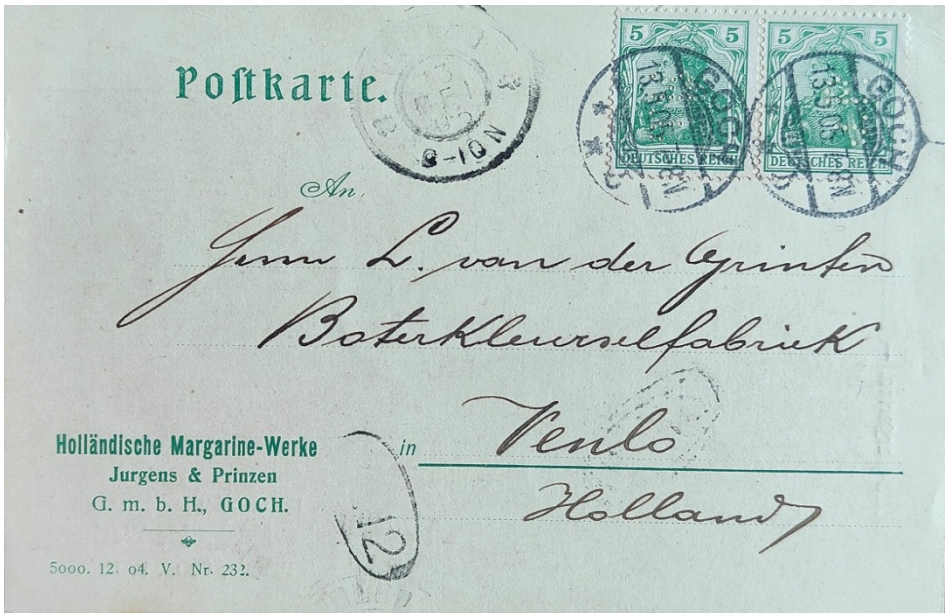 Postkarte.
8-10N
5 5 5 5
DEUTSCHES REICH DEUTSCHES REICH
GOCH GOCH
13.5.05. 7-8N
An
Herrn L. van der Grinten
Boterkleurselfabriek
in Venlo
Holland
Holländische Margarine-Werke
Jurgens & Prinzen
G. m. b. H., GOCH.
5000. 12. 04. V. Nr. 232.
12